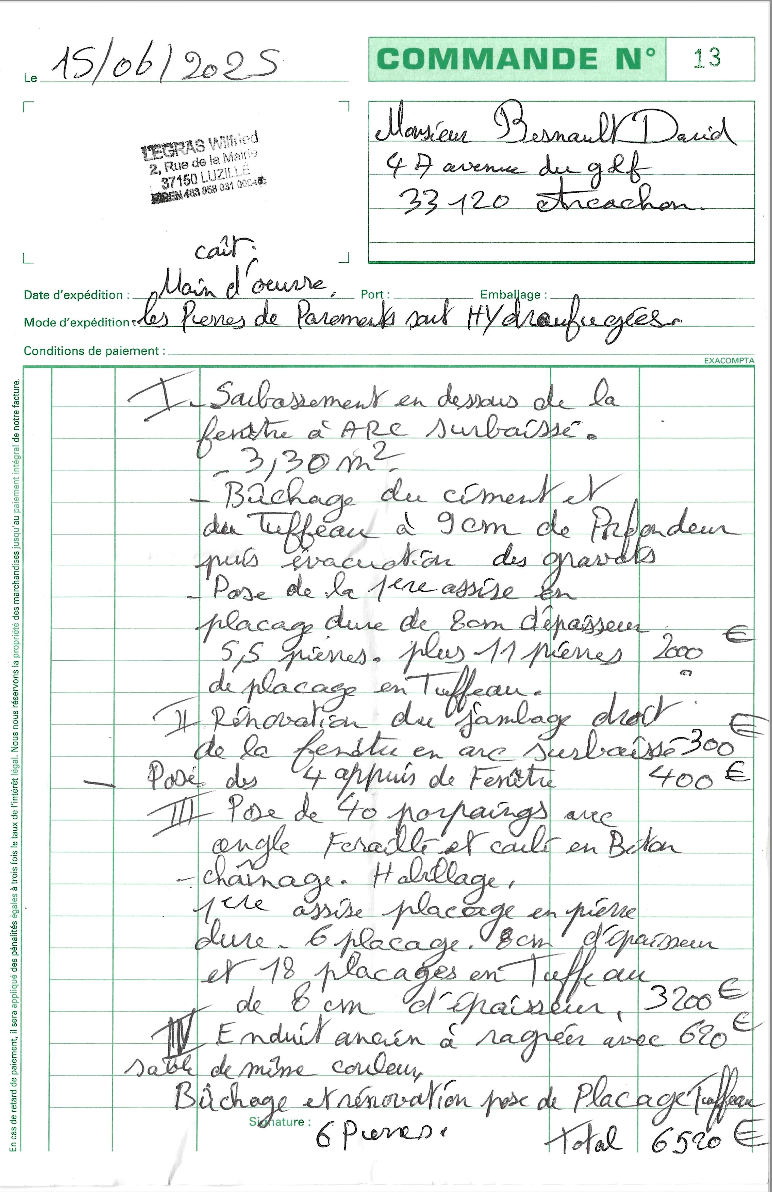 Le 15/06/2025
COMMANDE N° 13
LEGRAS Wilfried
2, Rue de la Mairie
37150 LUZILLÉ
Monsieur Besnault David
47 avenue du gdf
33120 Arcachon.
coût.
Main d'oeuvre.
Date d'expédition : Port : Emballage :
Mode d'expédition : les Pierres de Parements sont HYdraufugées.
Conditions de paiement :
EXACOMPTA
En cas de retard de paiement, il sera appliqué des pénalités égales à trois fois le taux de l'intérêt légal. Nous nous réservons la propriété des marchandises jusqu'au paiement intégral de notre facture.
I - Saubassement en dessous de la
fenêtre à ARC surbaissé.
- 3,30 m²
- Bûchage du ciment et
du Tuffeau à 9cm de Profondeur
puis évacuation des gravats
- Pose de la 1ere assise en
placage dure de 8cm d'épaisseur
5,5 pierres. plus 11 pierres 2000 €
de placage en Tuffeau.
II Rénovation du jambage droit
de la fenêtre en arc surbaissé 300 €
- Pose des 4 appuis de Fenêtre 400 €
III Pose de 40 parpaings avec
angle Feraillé et coulé en Béton
- chaînage. Habillage,
1ere assise placage en pierre
dure - 6 placage. 8cm d'épaisseur
et 18 placages en Tuffeau
de 8 cm d'épaisseur, 3200 €
IV Enduit ancien à ragréer avec 620 €
sable de même couleur,
Bûchage et rénovation pose de Placage Tuffeau
Signature :
6 Pierres. Total 6520 €